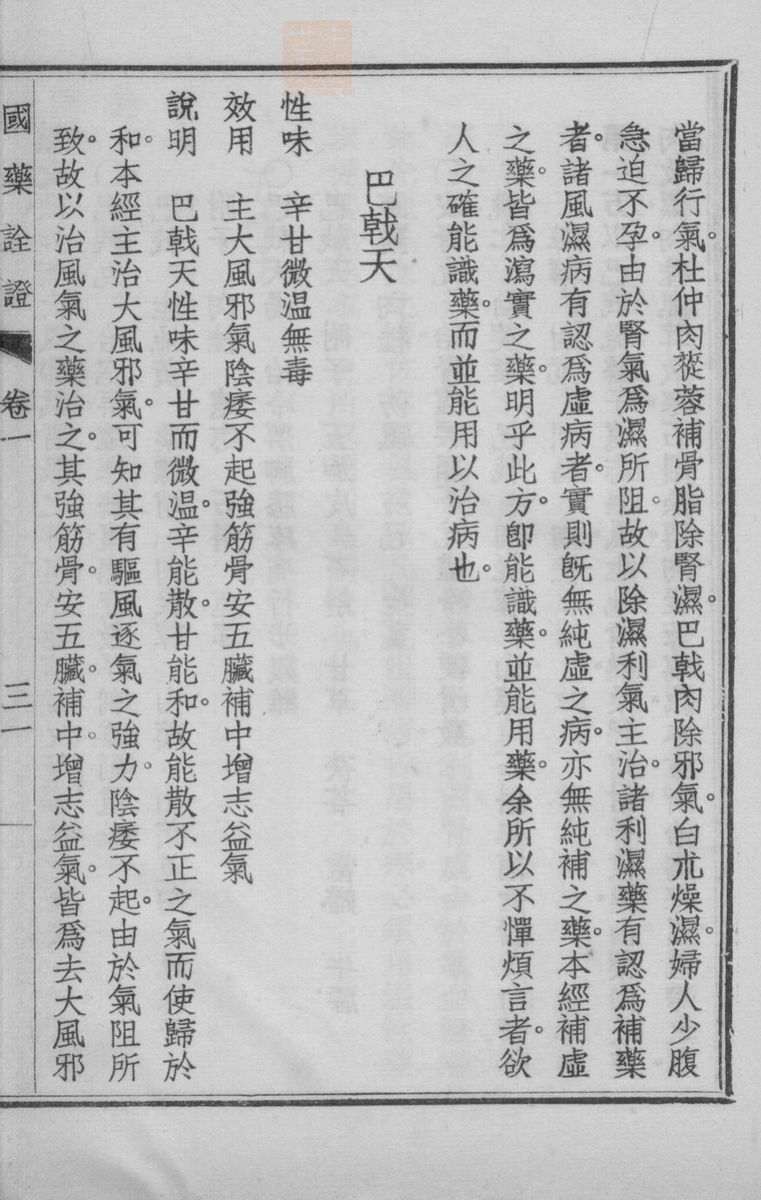 當歸行氣。杜仲肉蓯蓉補骨脂除腎濕。巴戟肉除邪氣。白朮燥濕。婦人少腹
急迫不孕。由於腎氣爲濕所阻。故以除濕利氣主治。諸利濕藥有認爲補藥
者。諸風濕病有認爲虛病者。實則旣無純虛之病。亦無純補之藥。本經補虛
之藥。皆爲瀉實之藥。明乎此方。卽能識藥。並能用藥。余所以不憚煩言者。欲
人之確能識藥。而並能用以治病也。
巴戟天
性味　辛甘微温無毒
效用　主大風邪氣陰痿不起強筋骨安五臟補中增志益氣
說明　巴戟天性味辛甘而微温。辛能散。甘能和。故能散不正之氣而使歸於
和。本經主治大風邪氣。可知其有驅風逐氣之強力。陰痿不起。由於氣阻所
致。故以治風氣之藥治之。其強筋骨。安五臟。補中。增志益氣。皆爲去大風邪
國藥詮證　卷一　三一